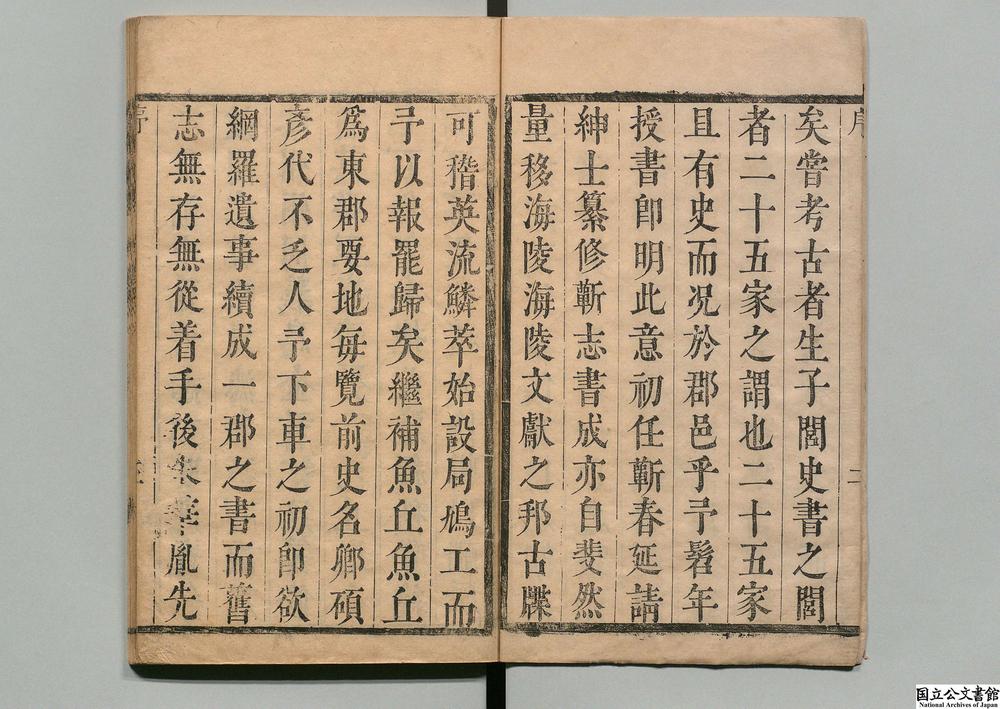 序
矣嘗考古者生子閭史書之閭
者二十五家之謂也二十五家
且有史而况於郡邑乎予髫年
授書卽明此意初任蘄春延請
紳士纂修蘄志書成亦自斐然
量移海陵海陵文獻之邦古牒
二
可稽英流鱗萃始設局鳩工而
予以報罷歸矣繼補魚丘魚丘
爲東郡要地每覽前史名卿碩
彥代不乏人予下車之初卽欲
網羅遺事續成一郡之書而舊
志無存無從着手後朱 胤先
序
国立公文書館
National Archives of Japan